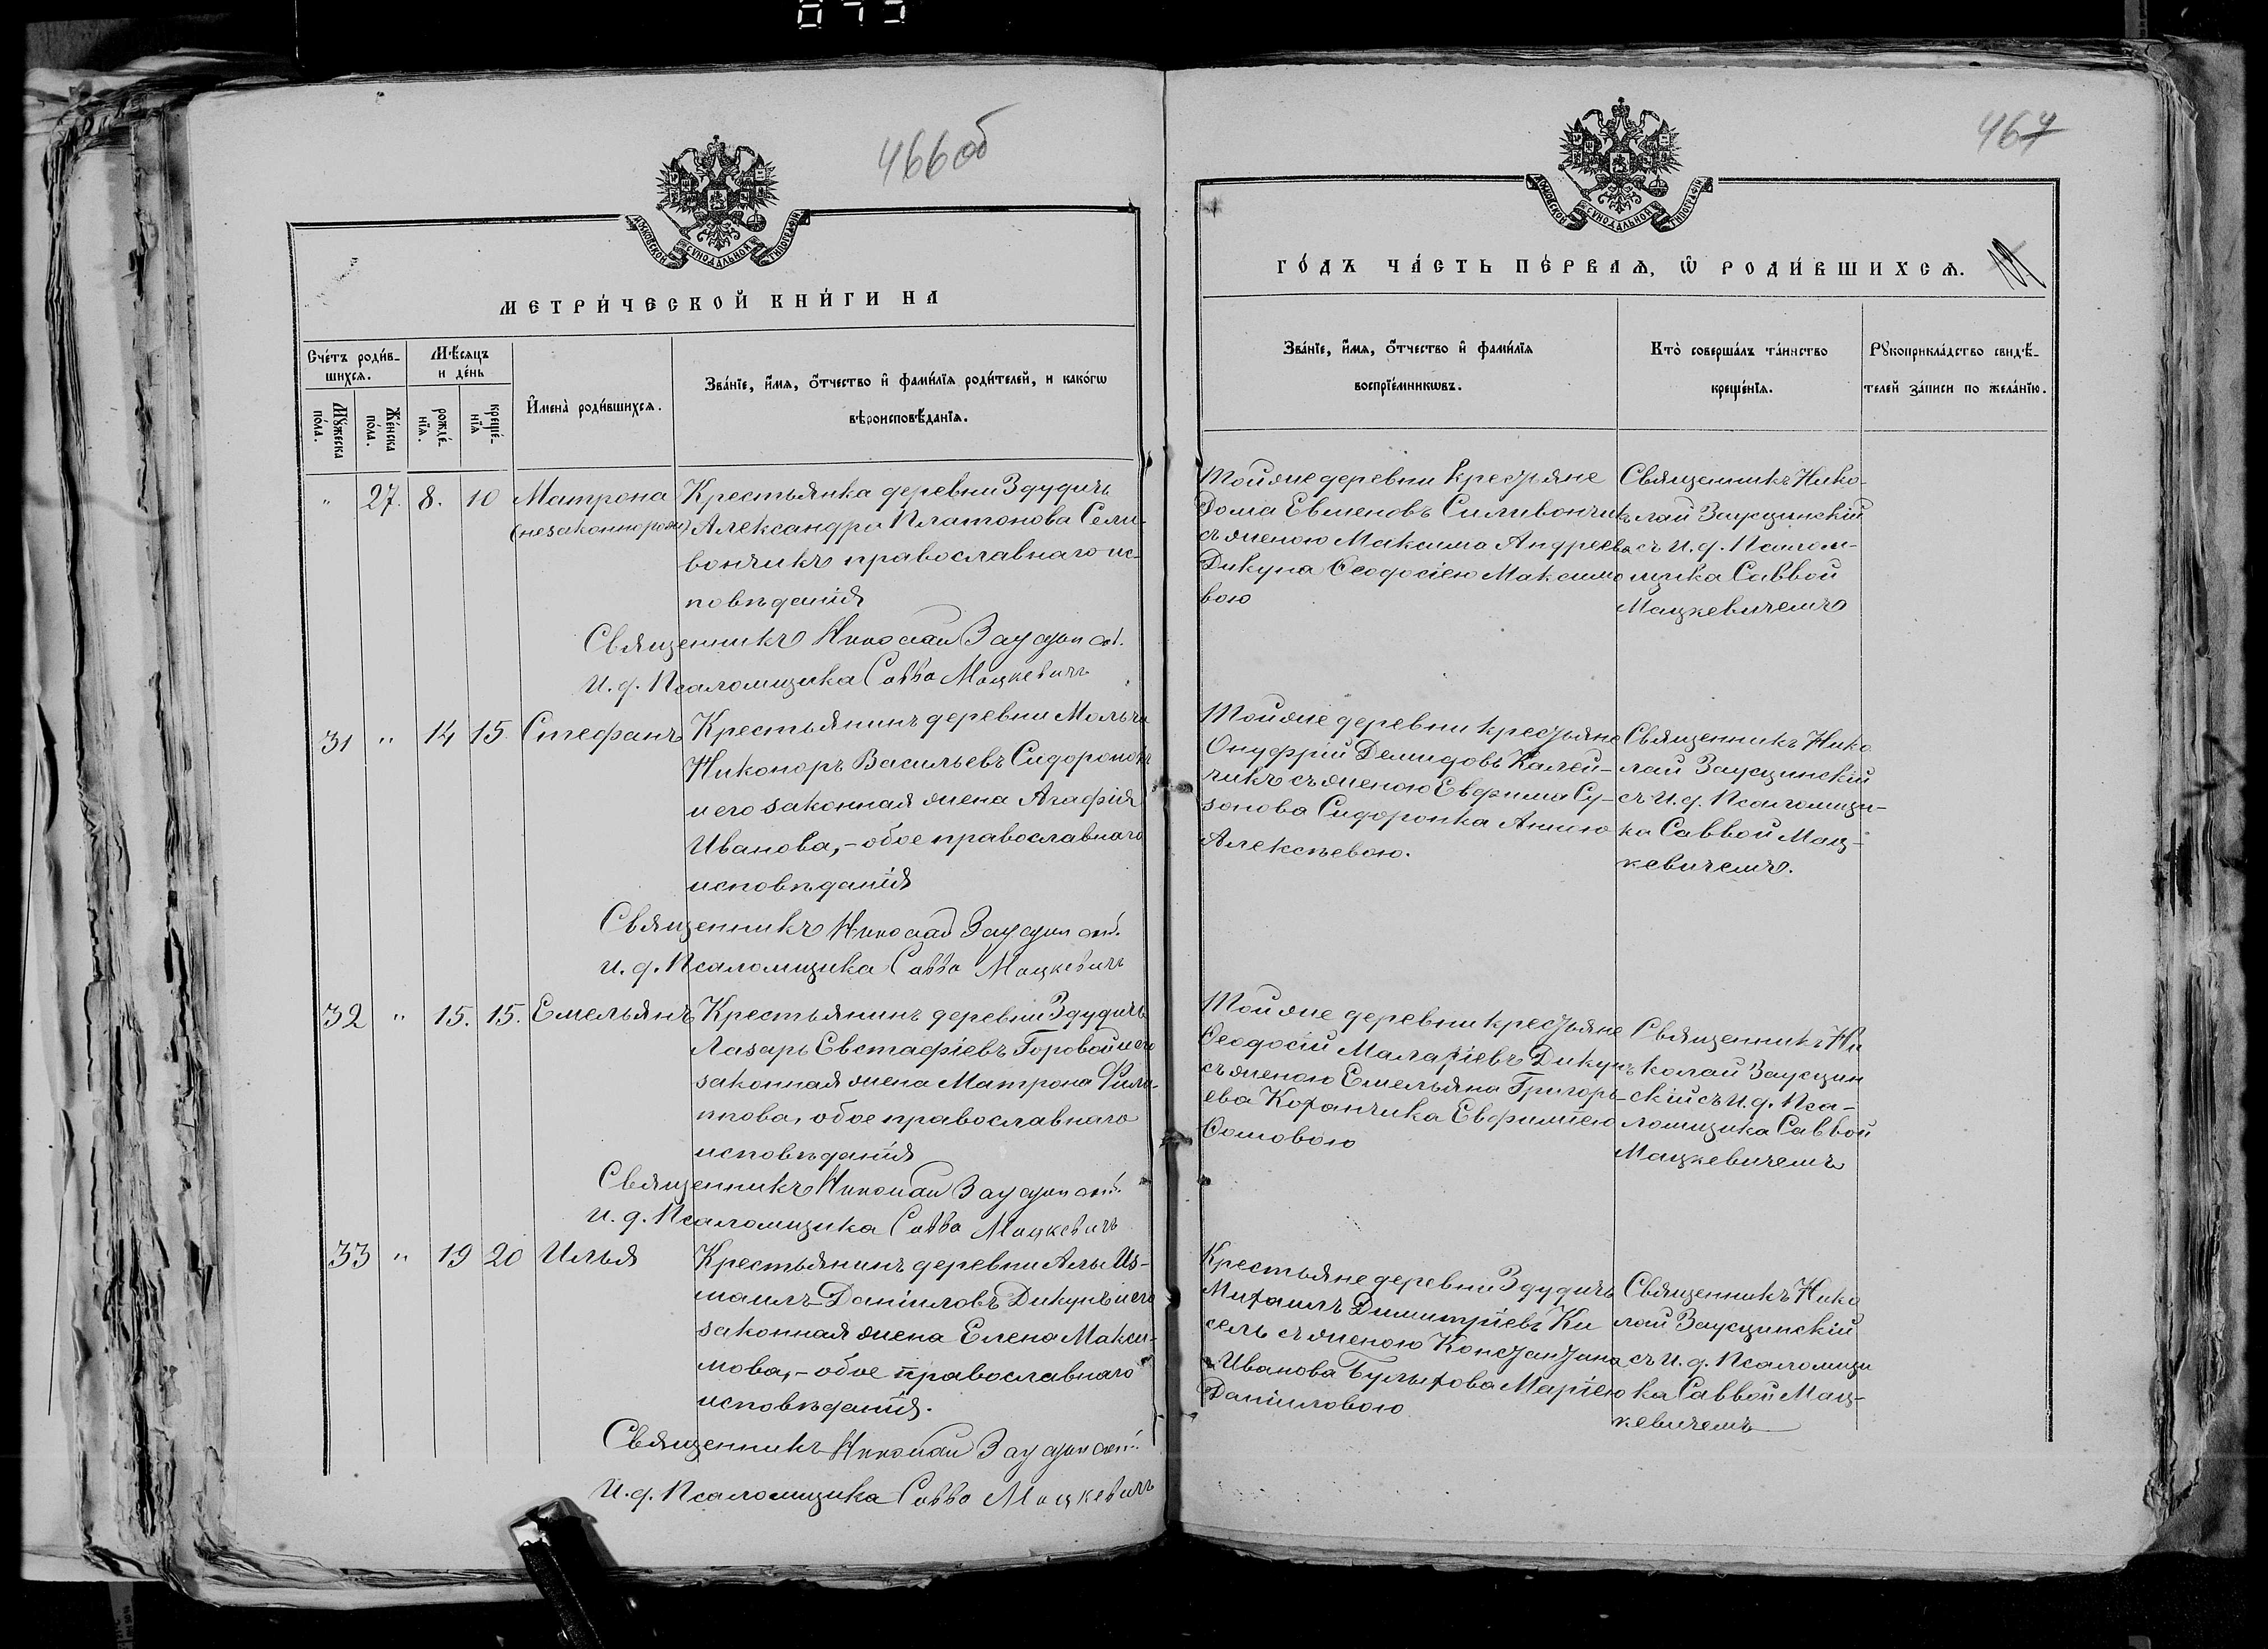 466об
МОСКОВСКОЙ СѴНОДАЛЬНОЙ ТИПОГРАФІИ
МЕТРИ́ЧЕСКОЙ КНИ́ГИ НА
Сче́тъ роди́в-
шихсѧ.
Мѣ́сѧцъ
и де́нь
Мꙋ́жеска
по́ла.
Же́нска
по́ла.
рожде́-
нїѧ.
креще́-
нїѧ
И҆мена̀ роди́вшихсѧ.
Зва́нїе, и҆́мѧ, ѻ҆́тчество и҆ фами́лїѧ роди́телей, и како́гѡ
вѣроисповѣ́данїѧ.
" 27. 8. 10 Матрона
(незаконнорож)
Крестьянка деревни Здудичъ
Александра Платонова Сели-
вончикъ православнаго ис-
повѣданія
Священникъ Николай
И. д. Псаломщика Савва Мацкевичъ
31 " 14 15. Стефанъ
Крестьянинъ деревни
Никоноръ Васильевъ
и его законная жена Агафія
Иванова, - обое православнаго
исповѣданія
Священникъ Николай
и. д. Псаломщика Савва Мацкевичъ
32 " 15. 15. Емельянъ
Крестьянинъ деревни Здудичъ
Лазарь Евстафіевъ Горовой и его
законная жена Матрона Фили-
пова, обое православнаго
исповѣданія
Священникъ Николай
и. д. Псаломщика Савва Мацкевичъ
33 " 19 20 Илья
Крестьянинъ деревни Алы Из-
маилъ Даніиловъ Дикунъ и его
законная жена Елена Макси-
мова, - обое православнаго
исповѣданія.
Священникъ Николай
И. д. Псаломщика Савва Мацкевичъ
467
МОСКОВСКОЙ СѴНОДАЛЬНОЙ ТИПОГРАФІИ
ГО́ДЪ ЧА́СТЬ ПЕ́РВАѦ, Ѡ҆ РОДИ́ВШИХСѦ.
Зва́нїе, и҆́мѧ, ѻ҆́тчество и҆ фами́лїѧ
воспрїе́мникѡвъ.
Кто̀ соверша́лъ та́инство
креще́нїѧ.
Рꙋкоприкла́дство свидѣ́-
телей за́писи по жела́нїю.
Той же деревни крестьяне
Ѳома Евменовъ Силивончикъ
съ женою Максима Андреева
Дикуна Ѳеодосіею Максимо
вою
Священникъ Нико-
лай Заусцинскій
съ И. д. Псалом-
щика Саввой
Мацкевичемъ
Той же деревни крестьяне
Онуфрій Демидовъ Калей-
чикъ съ женою Евфима Су-
зонова Сидоренка Анною
Алексѣевою.
Священникъ Нико
лай Заусцинскій
съ И. д. Псаломщи-
ка Саввой Мац-
кевичемъ.
Той же деревни крестьяне
Ѳеодосій Малахіевъ Дикунъ
съ женою Емельяна Григорь-
ева Коханчика Евфиміею
Ѳомовою
Священникъ Ни
колай Заусцин
скій съ И. д. Пса-
ломщика Саввой
Мацкевичемъ
Крестьяне деревни Здудичъ
Михаилъ Димитріевъ Ки
сель съ женою Константина
Иванова Булыхова Маріею
Даніиловою
Священникъ Нико
лай Заусцинскій
съ И. д. Псаломщи
ка Саввой Мац-
кевичемъ